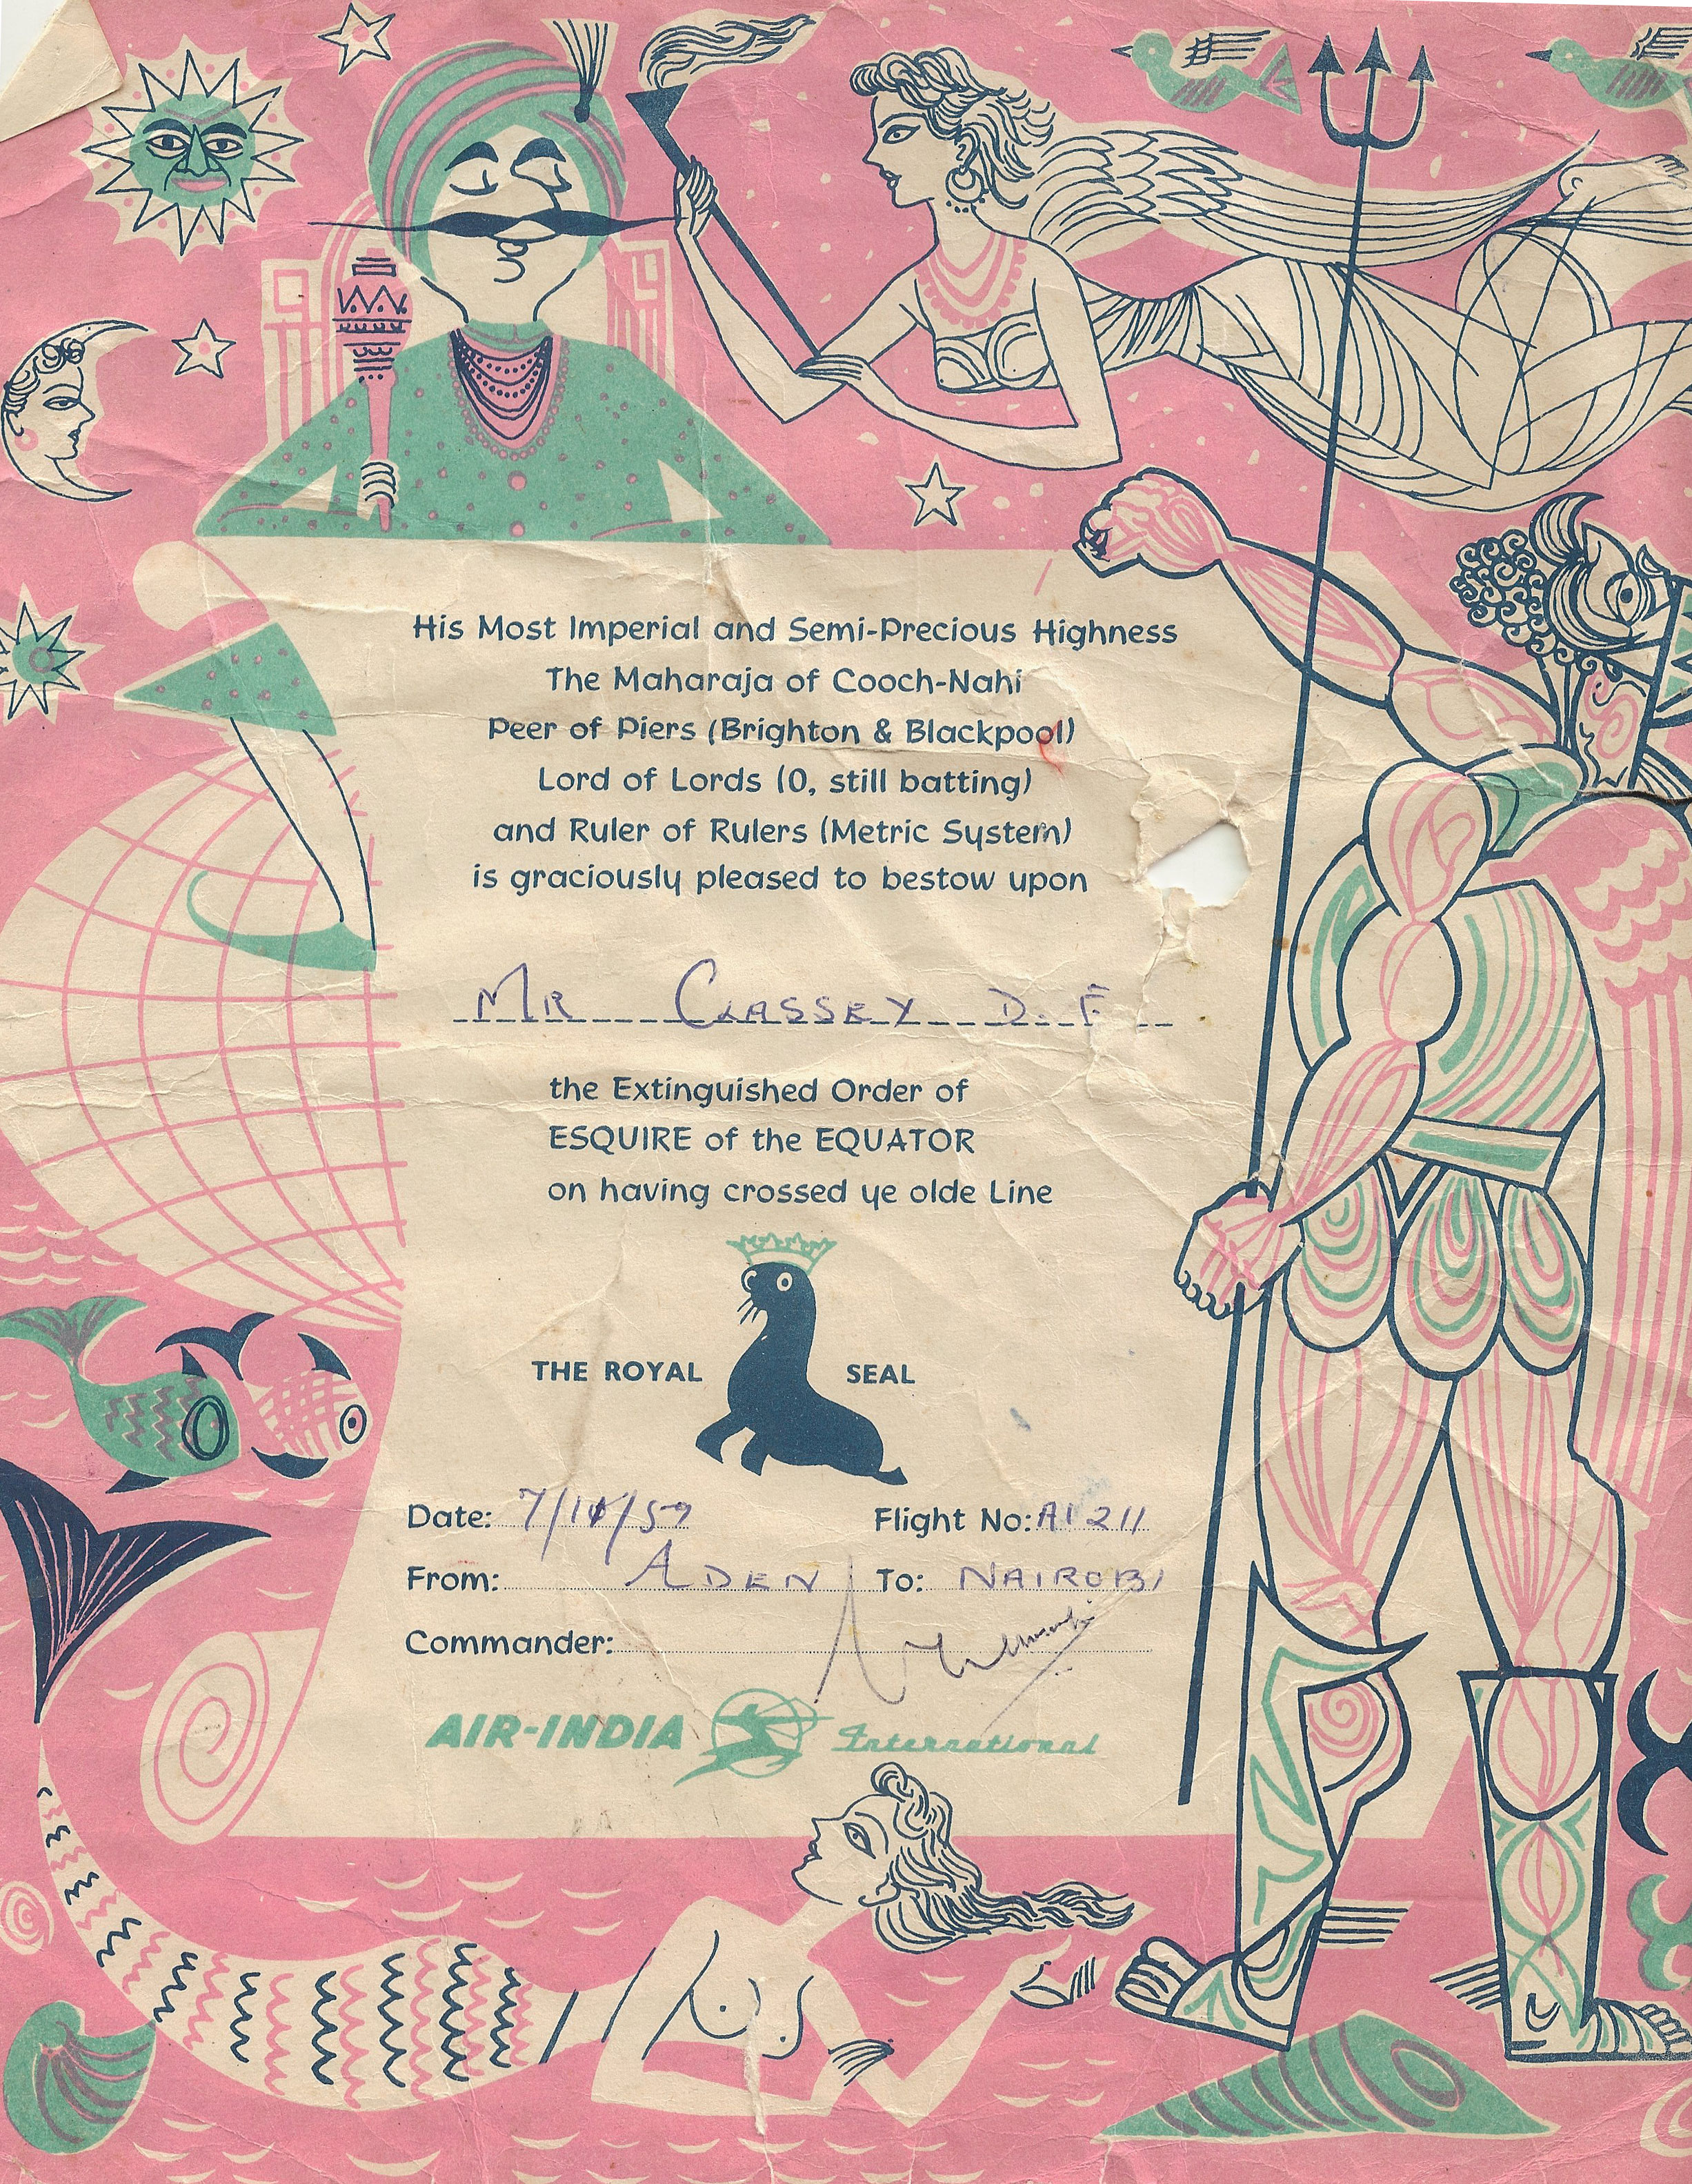 His Most Imperial and Semi-Precious Highness
The Maharaja of Cooch-Nahi
Peer of Piers (Brighton & Blackpool)
Lord of Lords (0, still batting)
and Ruler of Rulers (Metric System)
is graciously pleased to bestow upon
MR CLASSEY D. F
the Extinguished Order of
ESQUIRE of the EQUATOR
on having crossed ye olde Line
THE ROYAL SEAL
Date: 7/10/59 Flight No: AI 211
From: ADEN To: NAIROBI
Commander:
AIR-INDIA International